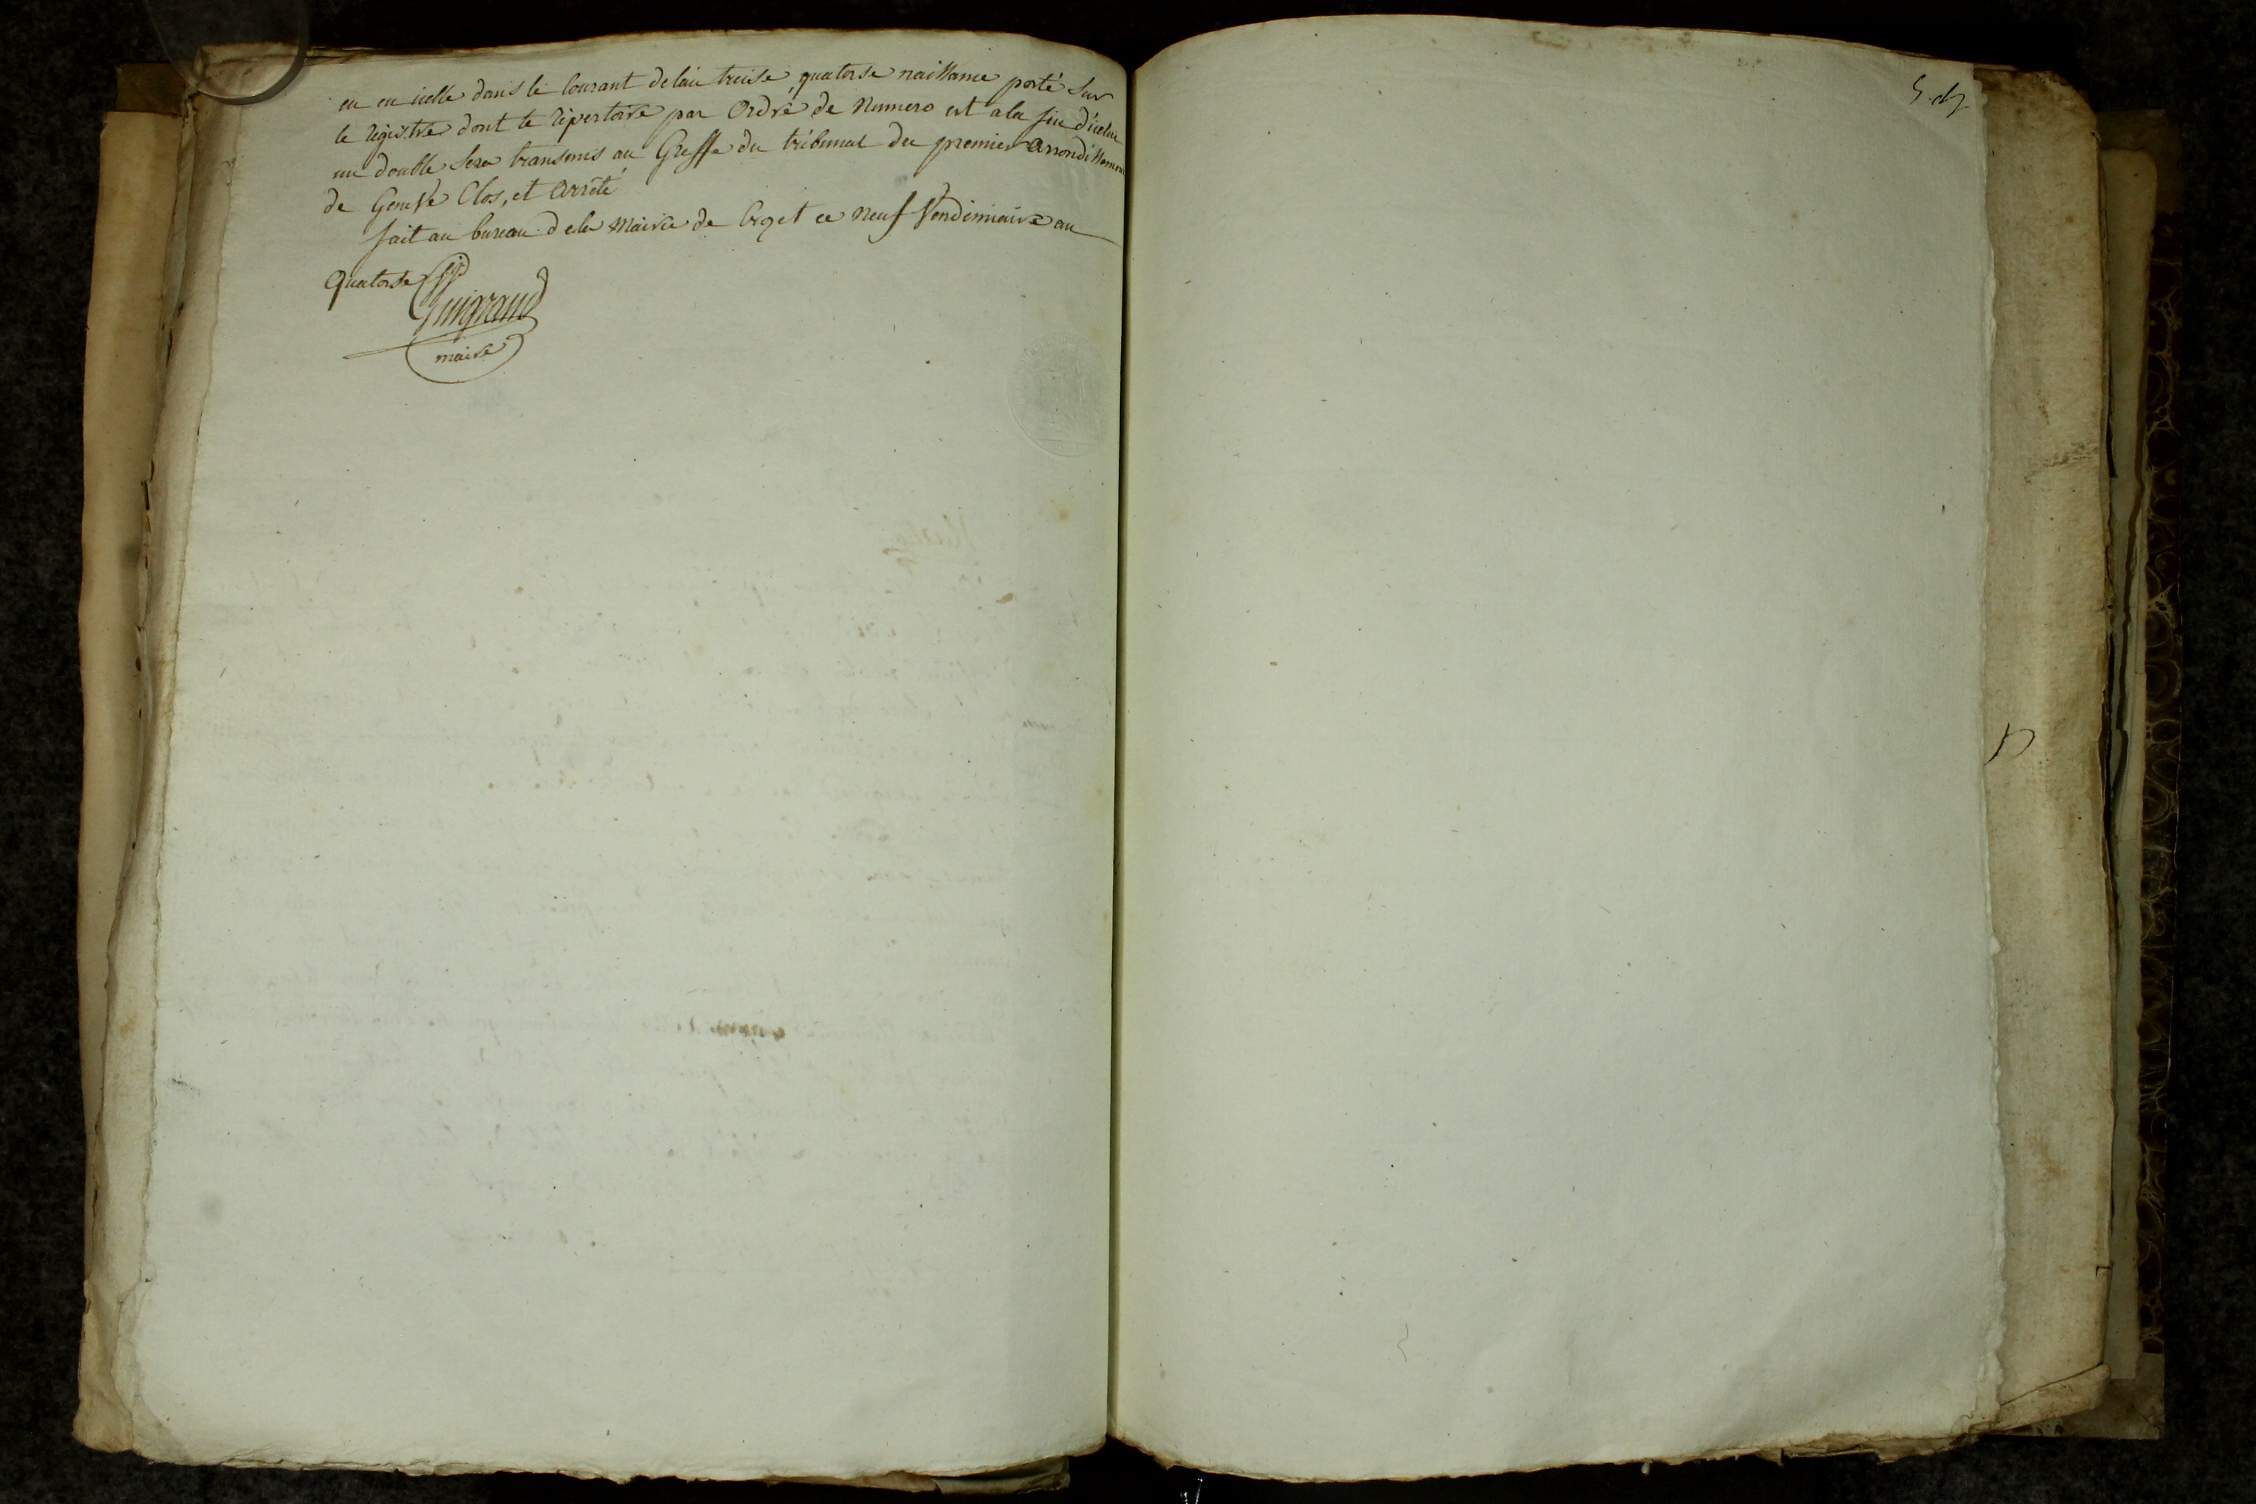 eu en icelle dans le Courant de lan treise, quatorse naissance porté sur
le registre dont le répertoire par Ordre de Numero est a la fin d'icelui
un double sera transmis au Greffe du tribunal du premier arrondissement
de Genève Clos, et arrêté
fait au bureau de la Mairie de ce neuf Vendémiaire an
quatorse
Guigrand
maire